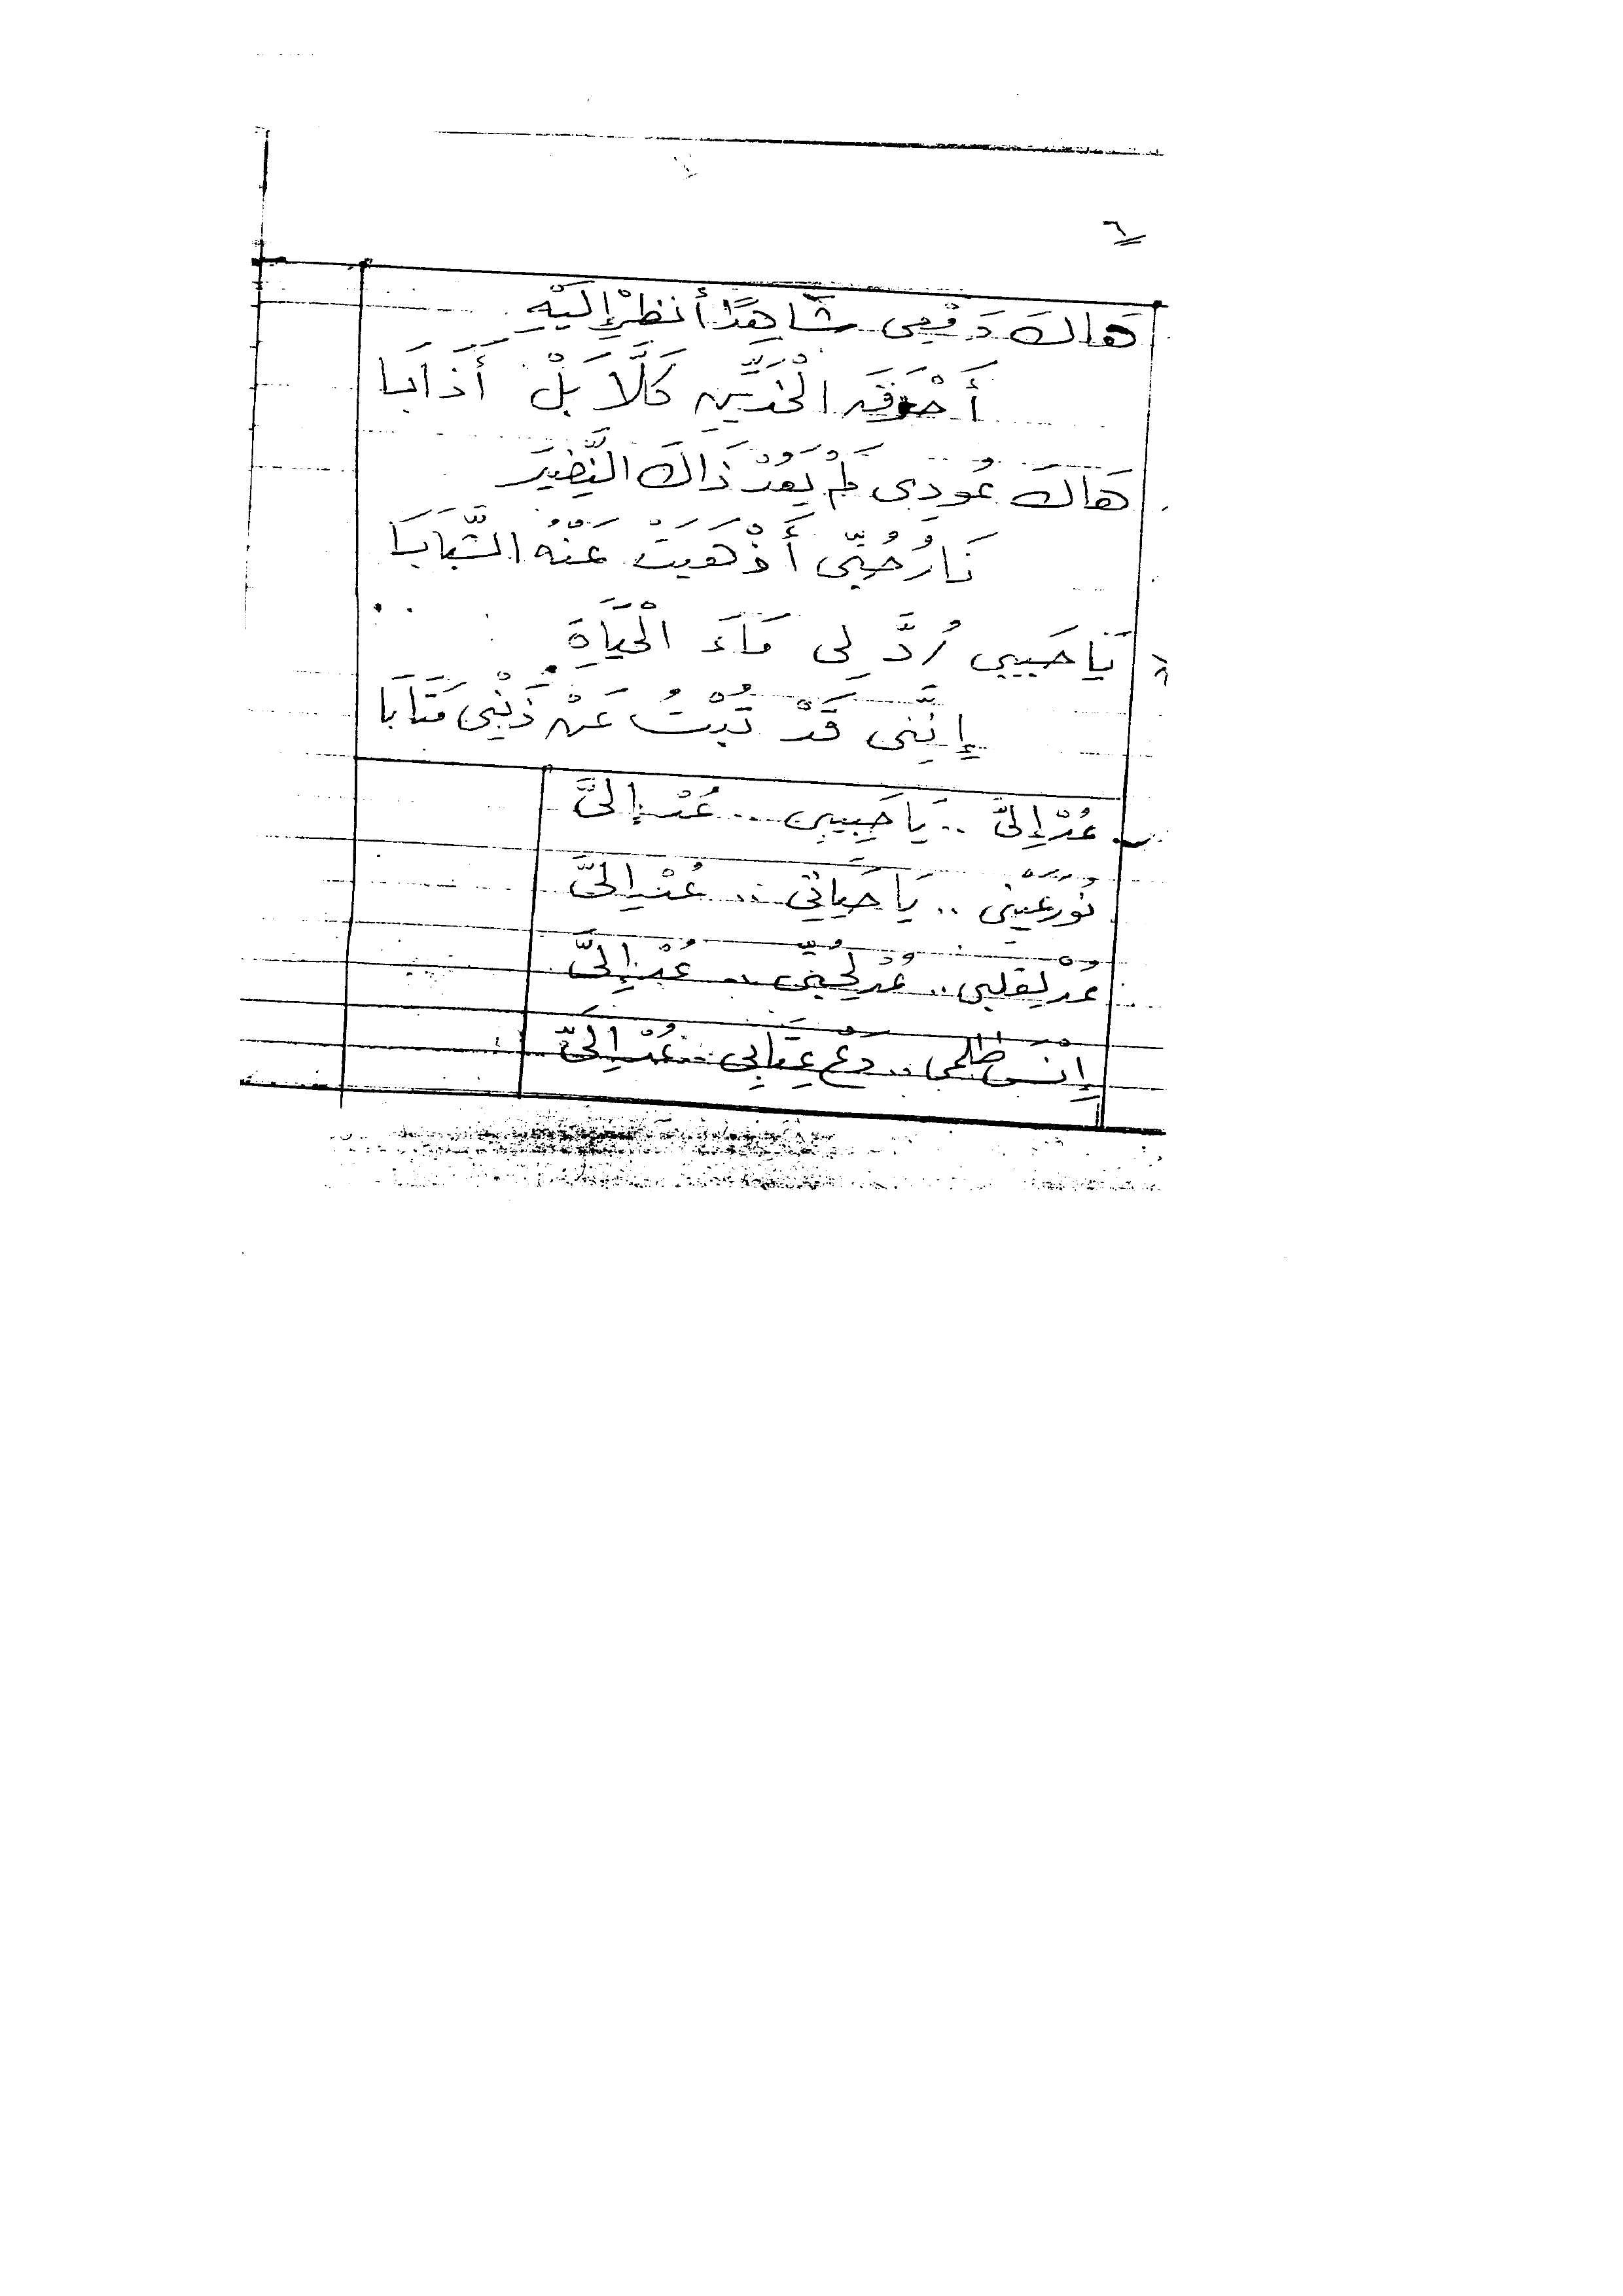 ٦
هَاكَ دَمْعِى شَاهِدًا أنظرْ إِلَيْهِ
أَحْرَقَ الْخَدَّيْنِ كَلَّا بَلْ أَذَابَا
هَاكَ عُودِى لَمْ يَعُدْ ذَاكَ النَّضِيرَ
نَارُ حُبِّى أَذْهَبَتْ عَنْهُ الشَّبَابَا
يَا حَبِيبِى رُدَّ لِى مَاءَ الْحَيَاةِ
إِنَّنِى قَدْ تُبْتُ عَنْ ذَنْبِى مَتَابَا
عُدْ إِلىَّ .. يَا حَبِيبِى .. عُدْ إِلىَّ
نُورَ عَيْنِى .. يَا حَيَاتِي .. عُدْ إِلىَّ
عُدْ لِقَلْبِى .. عُدْ لِحُبِّى .. عُدْ إِلىَّ
إِنْسَ ظُلْمِى .. دَعْ عِتَابِى .. عُدْ إِلَىَّ